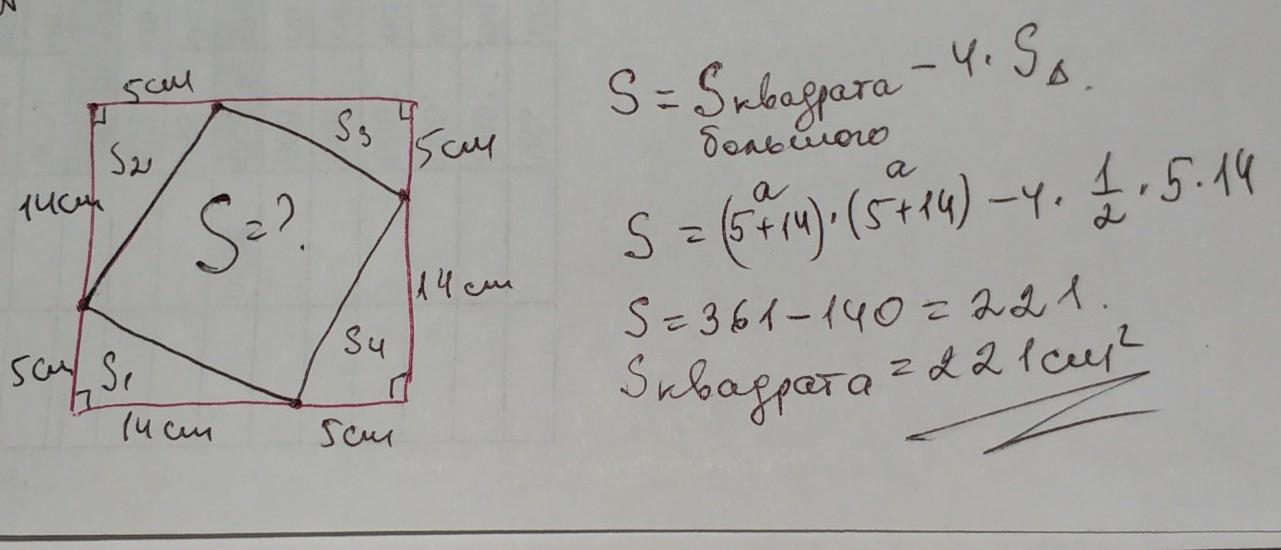 5см
S₂
S₃
5см
14см
S=?
14см
S₄
5см
S₁
14см
5см
S = Sквадрата - 4 · S△.
большого
a a
S = (5+14)·(5+14) - 4 · 1/2 · 5 · 14
S = 361 - 140 = 221.
Sквадрата = 221см²